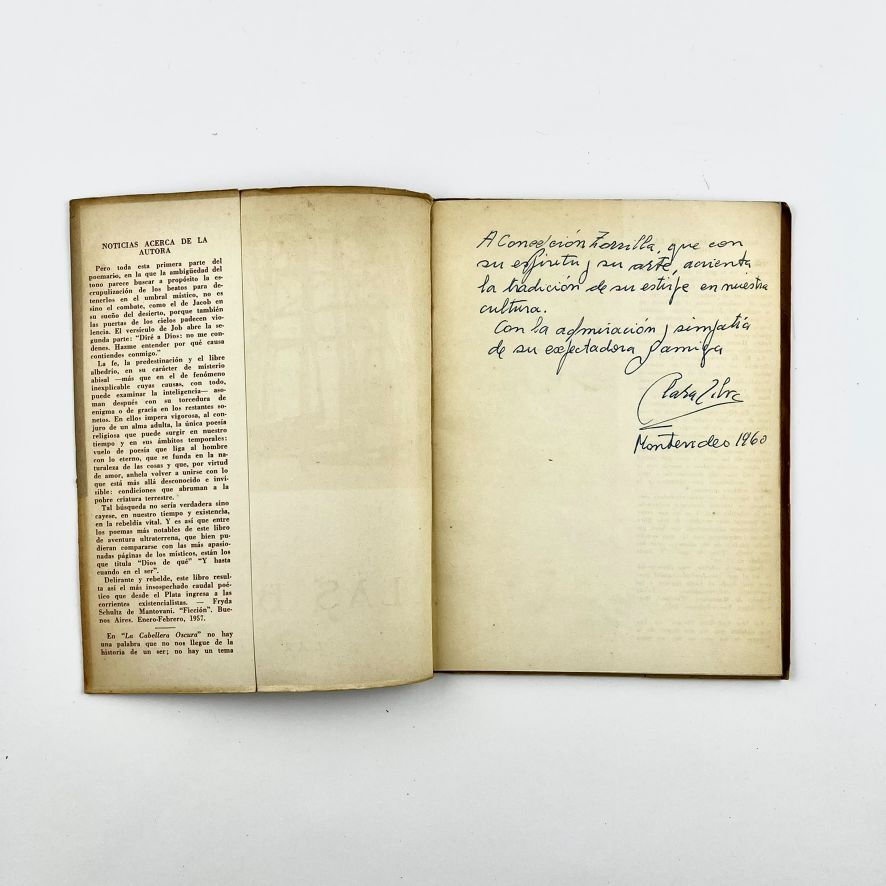 NOTICIAS ACERCA DE LA
AUTORA
Pero toda esta primera parte del
poemario, en la que la ambigüedad del
tono parece buscar a propósito la es-
crupulización de los beatos para de-
tenerlos en el umbral místico, no es
sino el combate, como el de Jacob en
su sueño del desierto, porque también
las puertas de los cielos padecen vio-
lencia. El versículo de Job abre la se-
gunda parte: "Diré a Dios: no me con-
denes. Hazme entender por qué causa
contiendes conmigo."
La fe, la predestinación y el libre
albedrío, en su carácter de misterio
abisal —más que en el de fenómeno
inexplicable cuyas causas, con todo,
puede examinar la inteligencia— aso-
man después con su torcedura de
enigma o de gracia en los restantes so-
netos. En ellos impera vigorosa, al con-
juro de un alma adulta, la única poesía
religiosa que puede surgir en nuestro
tiempo y en sus ámbitos temporales:
vuelo de poesía que liga al hombre
con lo eterno, que se funda en la na-
turaleza de las cosas y que, por virtud
de amor, anhela volver a unirse con lo
que está más allá desconocido e invi-
sible: condiciones que abruman a la
pobre criatura terrestre.
Tal búsqueda no sería verdadera sino
cayese, en nuestro tiempo y existencia,
en la rebeldía vital. Y es así que entre
los poemas más notables de este libro
de aventura ultraterrena, que bien pu-
dieran compararse con las más apasio-
nadas páginas de los místicos, están los
que titula "Dios de qué" "Y hasta
cuando en el ser".
Delirante y rebelde, este libro resul-
ta así el más insospechado caudal poé-
tico que desde el Plata ingresa a las
corrientes existencialistas. — Fryda
Schultz de Mantovani. "Ficción". Bue-
nos Aires. Enero-Febrero, 1957.
En "La Cabellera Oscura" no hay
una palabra que no nos llegue de la
historia de un ser; no hay un tema
A Concepción Zorrilla, que con
su espíritu y su arte, acrienta
la tradición de su estirpe en nuestra
cultura.
Con la admiración y simpatía
de su espectadora y amiga
Clara Silva
Montevideo 1960